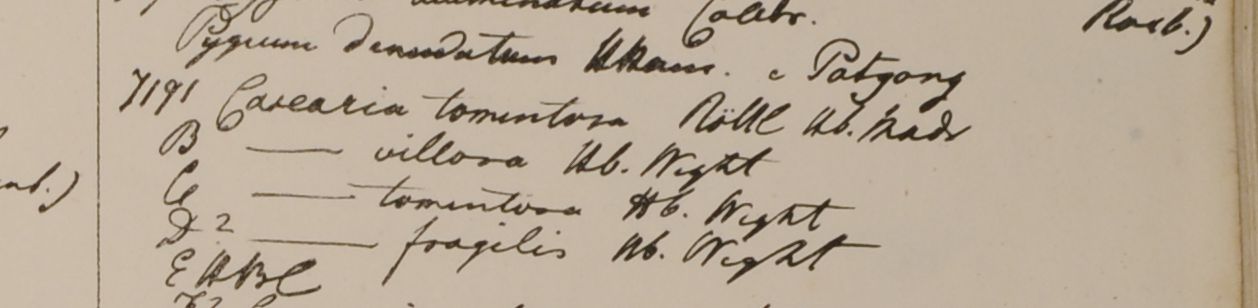 acuminatum Colebr. Roxb.)
Pygeum denudatum HHam. e Patgong
7191 Casearia tomentosa Röttl Hb. Madr
B — villosa Hb. Wight
mb.) C — tomentosa Hb. Wight
D? — fragilis Hb. Wight
E HBC